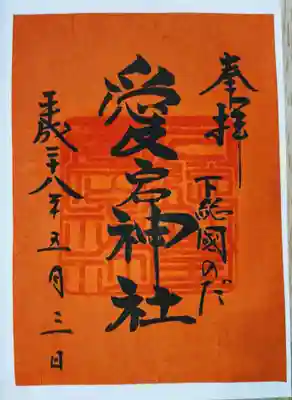 奉拝
下総国のだ
愛宕神社
平成二十八年五月三日